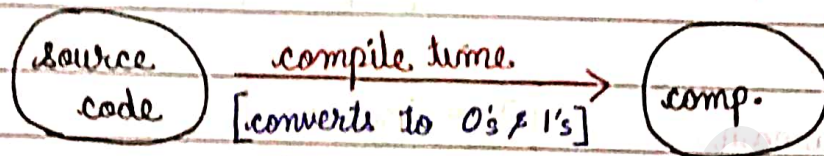 source
code
compile time
[converts to 0's & 1's]
comp.